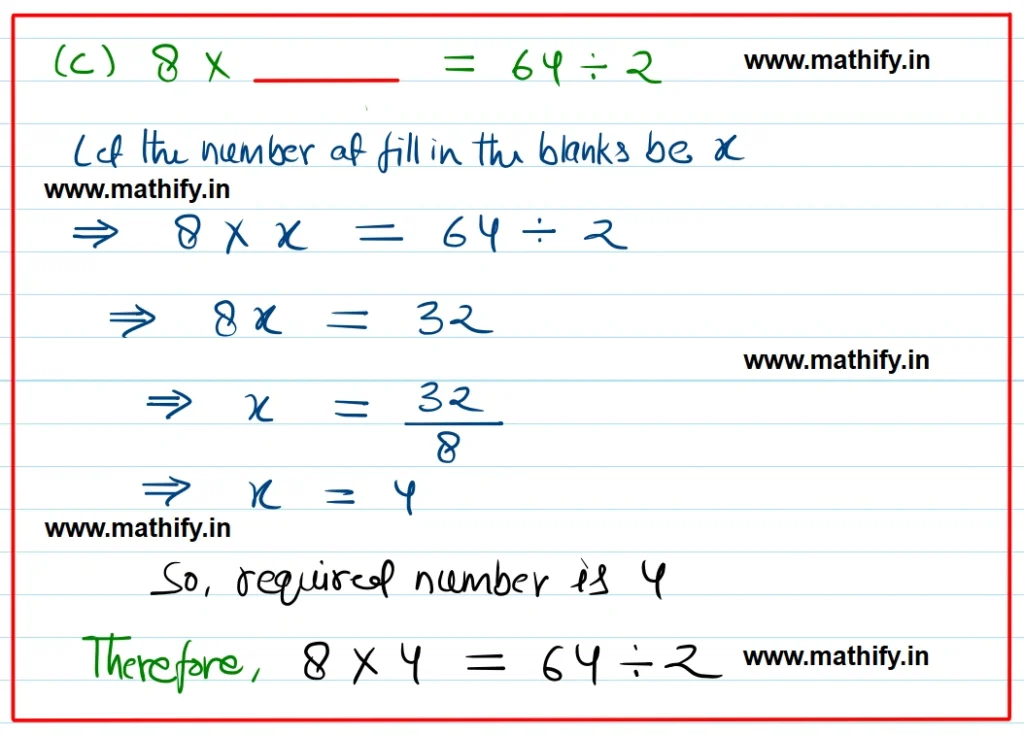 (C) 8 × ______ = 64 ÷ 2 www.mathify.in
Let the number at fill in the blanks be x
www.mathify.in
⇒ 8 × x = 64 ÷ 2
⇒ 8x = 32
www.mathify.in
⇒ x = 32/8
⇒ x = 4
www.mathify.in
So, required number is 4
Therefore, 8 × 4 = 64 ÷ 2 www.mathify.in